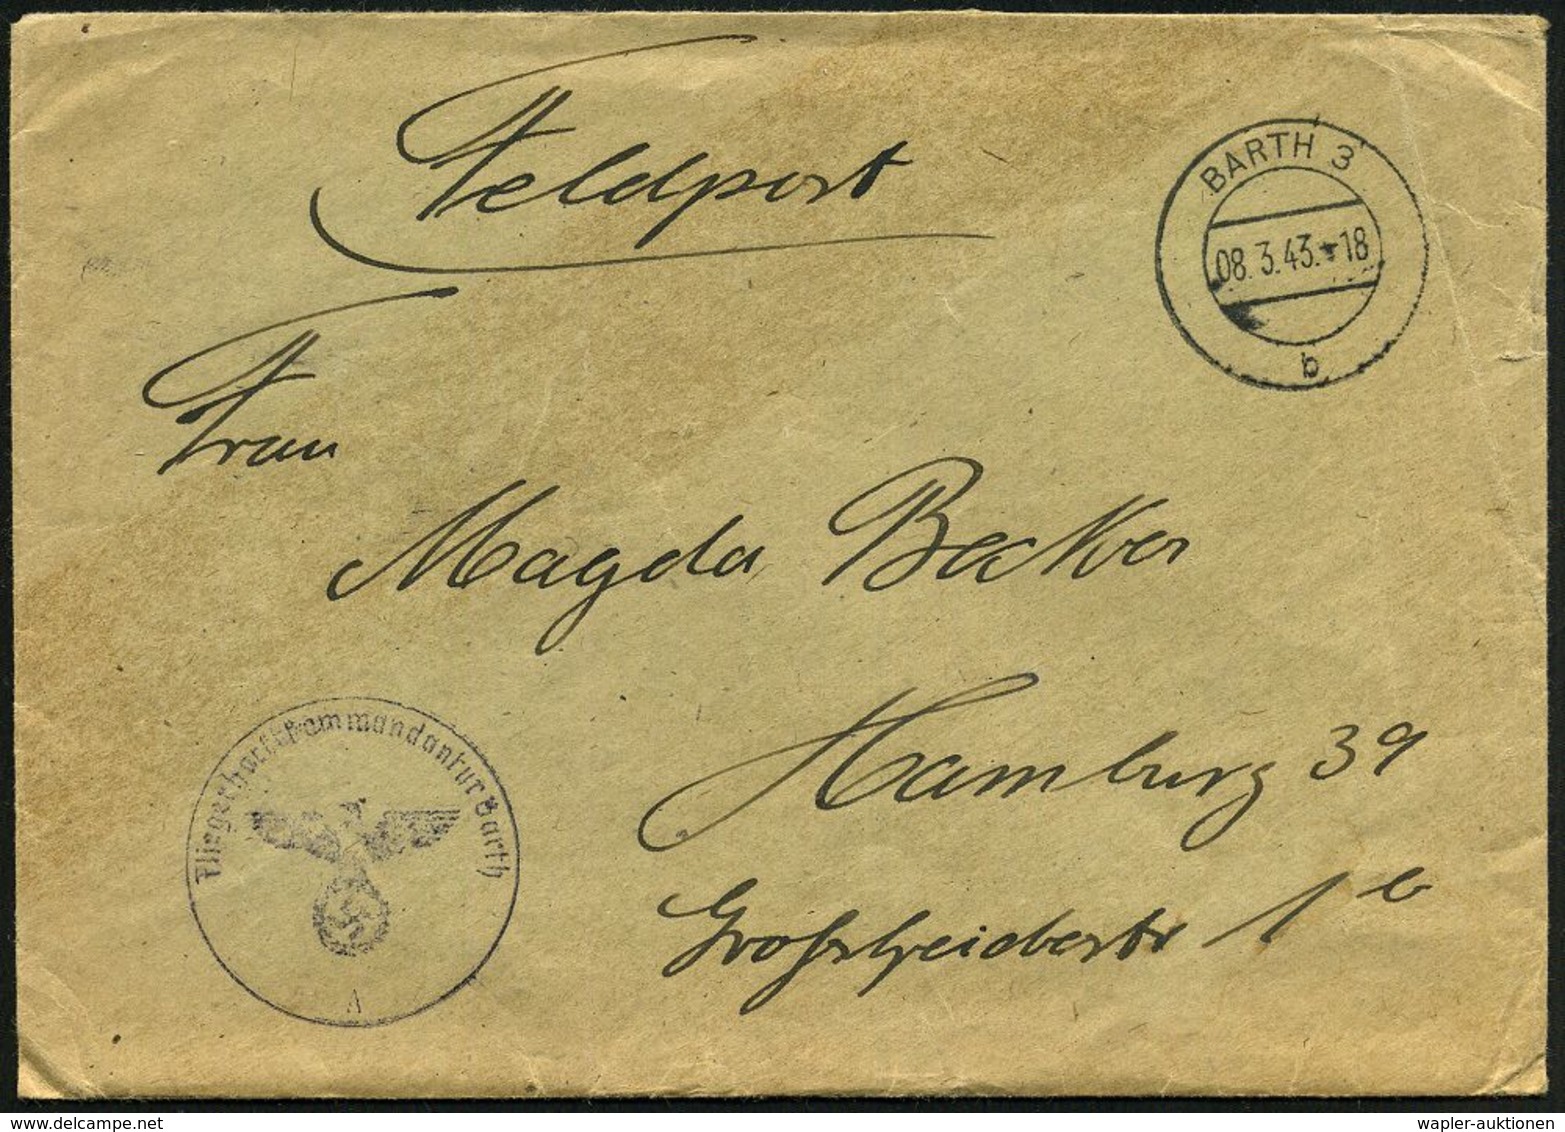 Feldpost
BARTH 3
08.3.43.-18
b
Frau
Magda Becker
Hamburg 39
Großheiderstr 1b
Fliegerhorstkommandantur Barth
A
wapler-auktionen